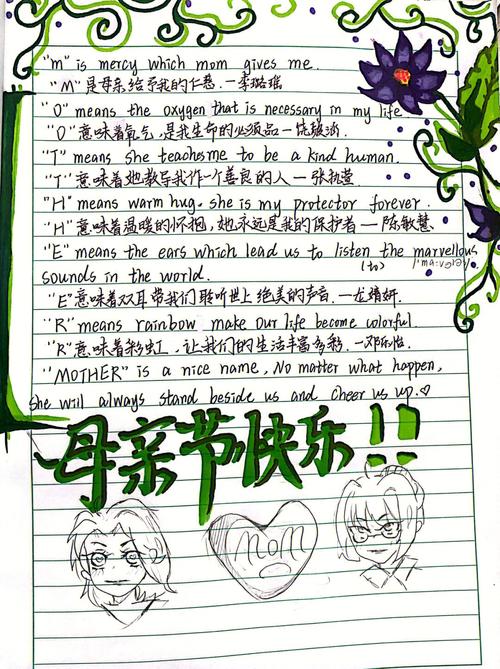 "m" is mercy which mom gives me.
"M"是母亲给予我的仁慈.一李璐瑶
"O" means the oxygen that is necessary in my life
"O"意味着氧气,是我生命的必须品一饶
"T" means she teaches me to be a kind human.
"T"意味着她教导我作一个善良的人一张
"H" means warm hug. she is my protector forever.
"H"意味着温暖的怀抱,她永远是我的保护者一陈敏慧
"E" means the ears which lead us to listen the marvellous
(to)
sounds in the world.
"E"意味着双耳带我们聆听世上绝美的声音.一龙婧妍
"R" means rainbow make our life become colorful.
"R"意味着彩虹,让我们的生活丰富多彩.一邓
"MOTHER" is a nice name, No matter what happen,
she will always stand beside us and cheer us up.♡
母亲节快乐!!
MOM